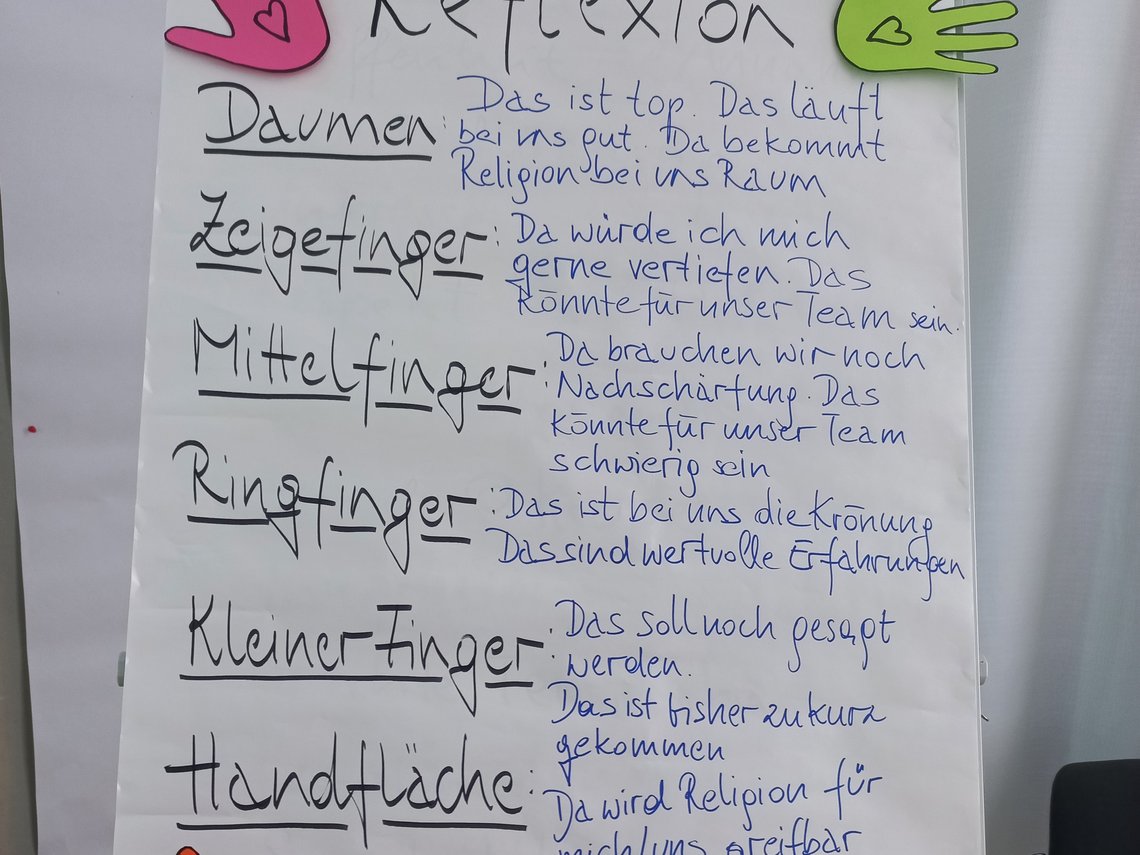 Reflexion
Daumen: Das ist top. Das läuft
bei uns gut. Da bekommt
Religion bei uns Raum
Zeigefinger: Da würde ich mich
gerne vertiefen. Das
könnte für unser Team sein.
Mittelfinger: Da brauchen wir noch
Nachschärfung. Das
könnte für unser Team
schwierig sein
Ringfinger: Das ist bei uns die Krönung
Das sind wertvolle Erfahrungen
Kleiner Finger: Das soll noch gesagt
werden.
Das ist bisher zu kurz
gekommen
Handfläche: Da wird Religion für
mich/uns greifbar